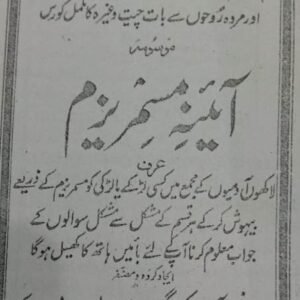 اور مردہ روحوں سے بات چیت وغیرہ کا مکمل کورس
آئینہ مسمریزم
عرف
لاکھوں آدمیوں کے مجمع میں کسی لڑکے یا لڑکی کو مسمریزم کے ذریعے
بیہوش کر کے ہر قسم کے مشکل سے مشکل سوالوں کے
جواب معلوم کرنا آپ کے لئے بائیں ہاتھ کا کھیل ہوگا
ایجاد کردہ و مصنفہ